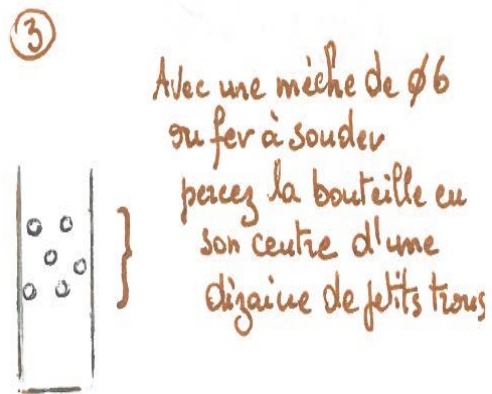 3
Avec une mèche de ø6
ou fer à souder
percez la bouteille en
son centre d'une
dizaine de petits trous